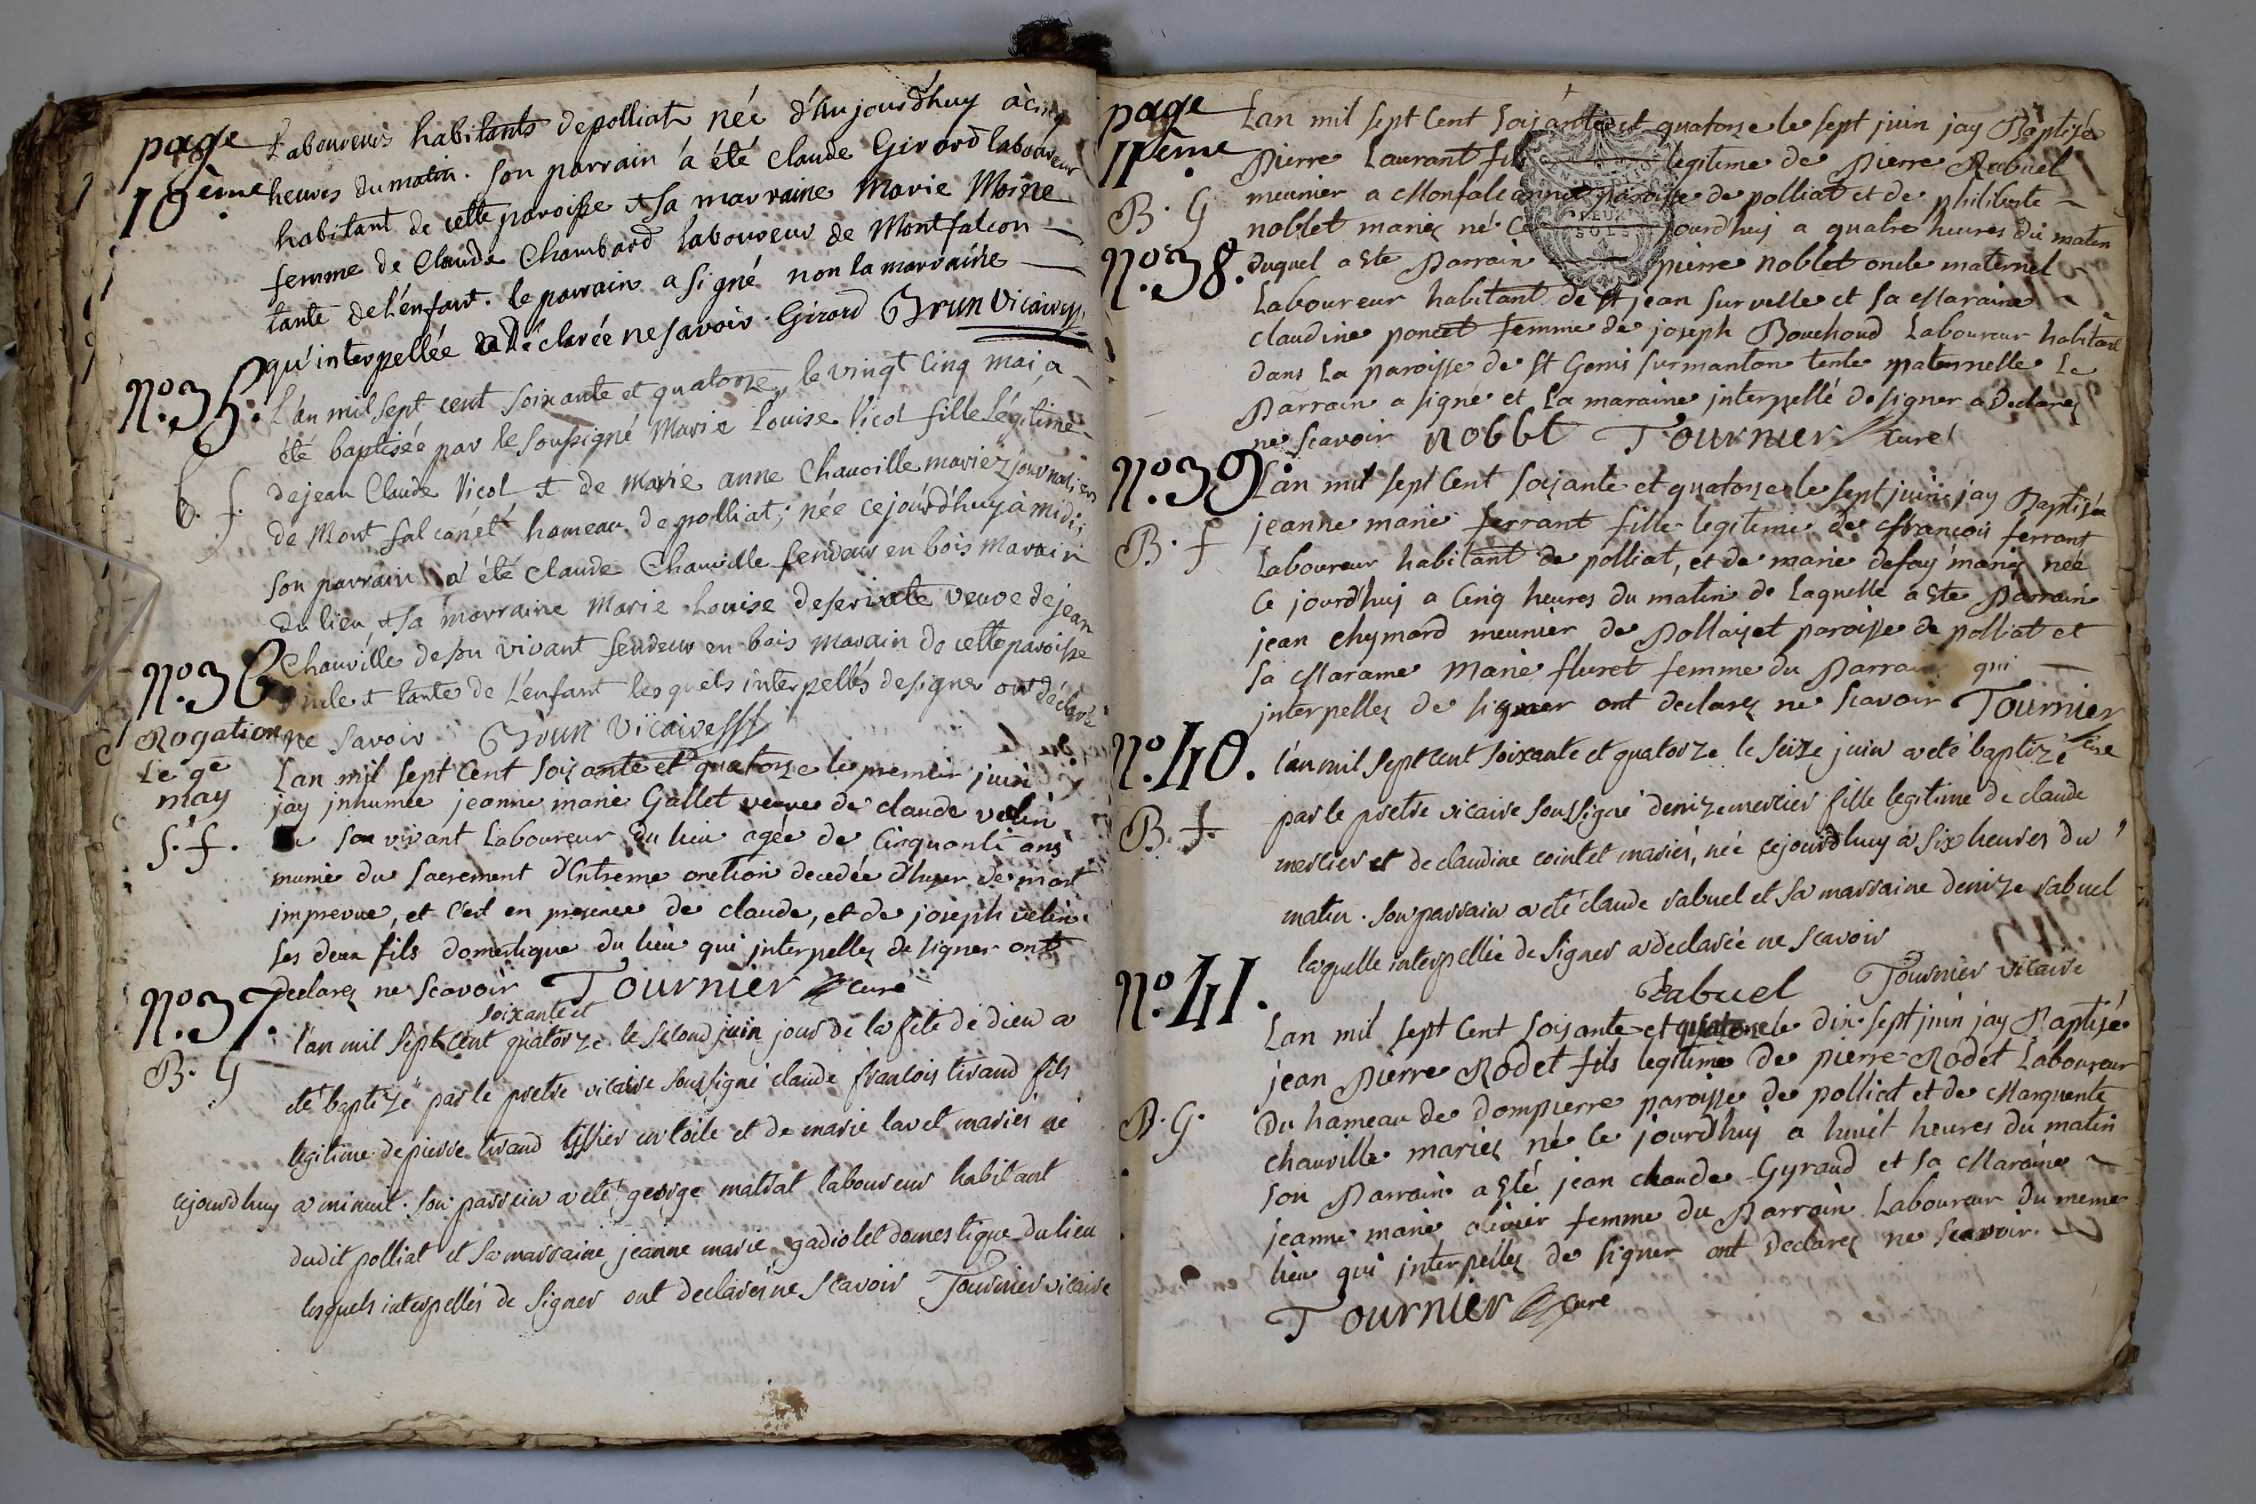 page
10ème
Laboureurs habitants depolliat née d'Aujourd'huy à cinq
heures du matin. son parrain à été claude Girard laboureur
habitant de cette paroisse & sa marraine Marie Moine
femme de Claude Chambard laboureur de Montfalcon
tante de l'enfant. le parrain a signé non la marraine
qu'interpellée a déclarée ne savoir. Girard Brun Vicaire
N:o 35.
b. f.
L'an mil sept cent soixante et quatorze, le vingt cinq mai, a
été baptisée par le soussigné Marie Louise Vicol fille légitime
de jean Claude Vicol & de Marie anne Chauville mariez journaliers
de Mont falconet hameau de polliat; née cejourd'huy à midi;
son parrain a été claude Chauville fendeur en bois Marain
du lieu & sa marraine Marie Louise veuve de jean
Chauville de son vivant fendeur en bois marain de cette paroisse
oncle & tante de l'enfant lesquels interpellés de signer ont déclaré
ne savoir Brun Vicaire
N:o 36
Rogation
Le 9e
may
S. f.
Lan mil sept Cent soixante et quatorze le premier juin
jay jnhumée jeanne marie Gallet veuve de claude velin
son vivant Laboureur du lieu agée de Cinquante ans
munie du sacrement d'Extreme onction decedée d'hyer de mort
jmprevue, et c'est en presence de claude, et de joseph velin
ses deux fils domestique du lieu qui jnterpellez de signer ont
declarez ne scavoir Tournier curé
N:o 37.
B. G
soixante et
l'an mil sept cent quatorze le second juin jour de la fête de dieu a
eté baptizé par le pretre vicaire soussigné claude francois tirand fils
legitime de pierre tirand tissier en toile et de marie lavet mariés né
cejourd'huy a minuit. son parrein a eté george mattat laboureur habitant
dudit polliat et sa marraine jeanne marie gadiolet domestique du lieu
lesquels interpellés de signer ont declarés ne scavoir Tournier vicaire
page
11ème
B. G
N:o 38.
Lan mil sept Cent soixante et quatorze le sept juin jay Baptizé
Pierre Laurant fils legitime de Pierre Rabuel
meunier a Monfalconnet paroisse de polliat et de philiberte
noblet mariez né Ce jourd'huy a quatre heures du matin
duquel a ete Parrain pierre noblet oncle maternel
Laboureur habitant de st jean sur velle et sa Maraine
claudine poncet femme de joseph Bouchoud Laboureur habitant
dans la paroisse de St Genis sur manton tente maternelle Le
Parrain a signé et la maraine jnterpellé de signer a declarez
ne scavoir Noblet Tournier curé
N:o 39
B. f
Lan mil sept Cent soixante et quatorze le sept juin jay Baptizée
jeanne marie ferrant fille legitime de francois ferrant
Laboureur habitant de polliat, et de marie defay mariez née
Ce jourd'huy a Cinq heures du matin de laquelle a ete Parrain
jean chymard meunier de Pollaizet paroisse de polliat et
sa Maraine Marie fluret femme du Parrain qui
jnterpellez de signer ont declarez ne scavoir Tournier
curé
N:o 40.
B. f.
l'an mil sept cent soixante et quatorze le seize juin a eté baptizé
par le pretre vicaire soussigné denize mercier fille legitime de claude
mercier et de claudine cointet mariés, née cejourd'huy a six heures du
matin. son parrain a eté claude rabuel et sa marraine denize rabuel
laquelle interpellée de signer a declarée ne scavoir
Rabuel Tournier vicaire
N:o 41.
B. G.
Lan mil sept Cent soixante et quatorze le dix sept juin jay Baptizé
jean Pierre Rodet fils legitime de pierre Rodet Laboureur
Du hameau de Dompierre paroisse de polliat et de Marguerite
chauville mariez né le jourd'huy a huict heures du matin
son Parrain a eté jean claude Gyraud et sa Maraine
jeanne marie olivier femme du Parrain Laboureur du meme
lieu qui jnterpellez de signer ont declarez ne scavoir.
Tournier curé